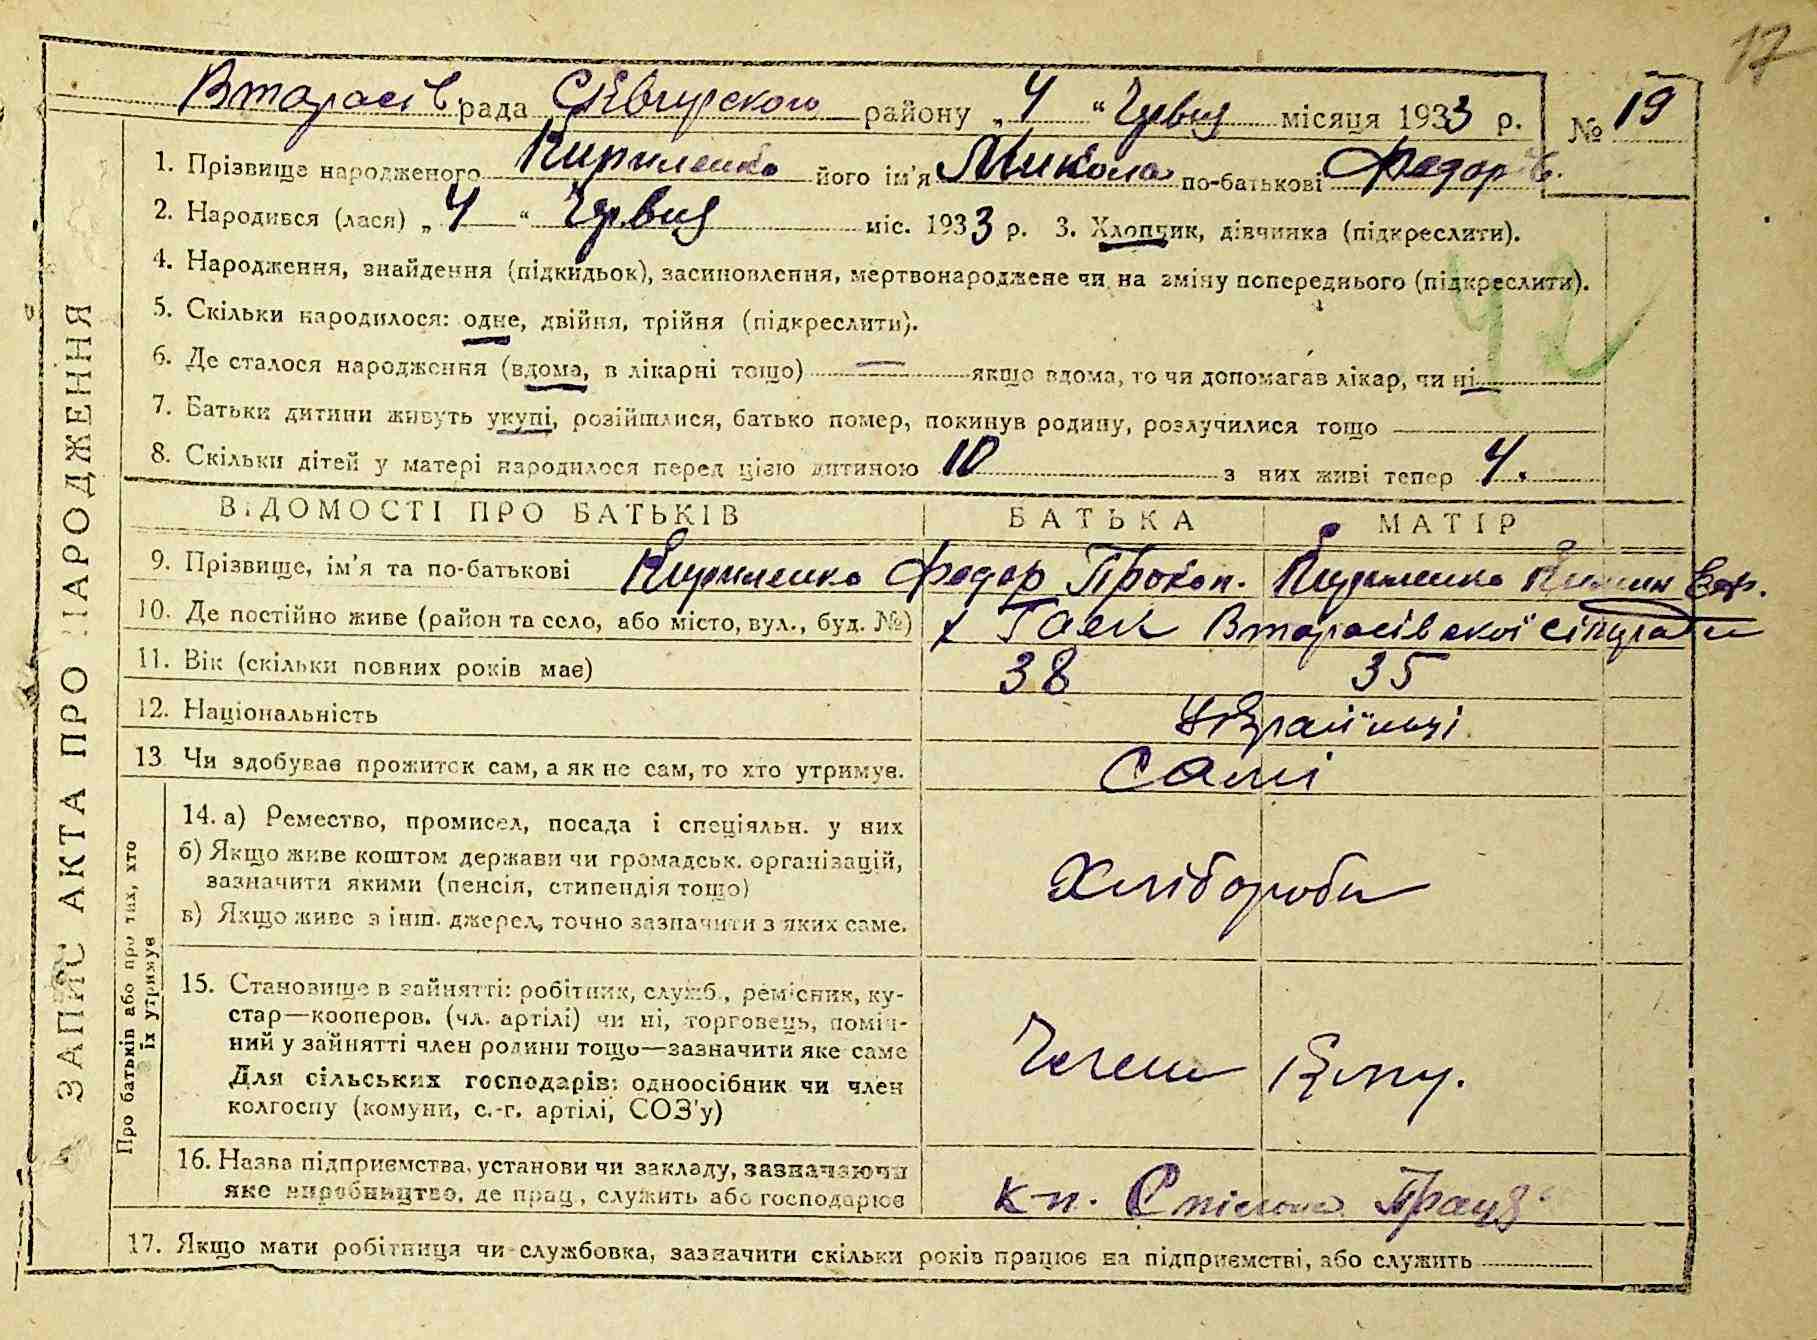 17
Втарасів рада Сквирского району „ 4 “ Червня місяця 1933 р. № 19
1. Прізвище народженого Кириленко його ім'я Микола по-батькові Федор
2. Народився (лася) „ 4 “ Червня міс. 1933 р. 3. Хлопчик, дівчинка (підкреслити).
4. Народження, знайдення (підкидьок), засиновлення, мертвонароджене чи на зміну попереднього (підкреслити).
5. Скільки народилося: одне, двійня, трійня (підкреслити).
42
6. Де сталося народження (вдома, в лікарні тощо) — якщо вдома, то чи допомагав лікар, чи ні
7. Батьки дитини живуть укупі, розійшлися, батько помер, покинув родину, розлучилися тощо
8. Скільки дітей у матері народилося перед цією дитиною 10 з них живі тепер 4.
ВІДОМОСТІ ПРО БАТЬКІВ БАТЬКА МАТІР
9. Прізвище, ім'я та по-батькові Кириленко Федор Прокоп. Кириленко
10. Де постійно живе (район та село, або місто, вул., буд. №) х Гаек Втарасівскої сільради
11. Вік (скільки повних років має) 38 35
12. Національність Українці
13. Чи здобуває прожиток сам, а як не сам, то хто утримує. Самі
14. а) Ремество, промисел, посада і спеціяльн. у них
б) Якщо живе коштом держави чи громадськ. організацій,
зазначити якими (пенсія, стипендія тощо)
Хлібороби
в) Якщо живе з інш. джерел, точно зазначити з яких саме.
15. Становище в зайнятті: робітник, служб., ремісник, ку-
стар—кооперов. (чл. артілі) чи ні, торговець, поміч-
ний у зайнятті член родини тощо—зазначити яке саме
Для сільських господарів: одноосібник чи член
колгоспу (комуни, с.-г. артілі, СОЗ'у)
Члени
16. Назва підприємства, установи чи закладу, зазначаючи
яке виробництво, де прац., служить або господарює
к-п. Спільна Праця
17. Якщо мати робітниця чи службовка, зазначити скільки років працює на підприємстві, або служить
ЗАПИС АКТА ПРО НАРОДЖЕННЯ
Про батьків або про тих, хто
їх утримує